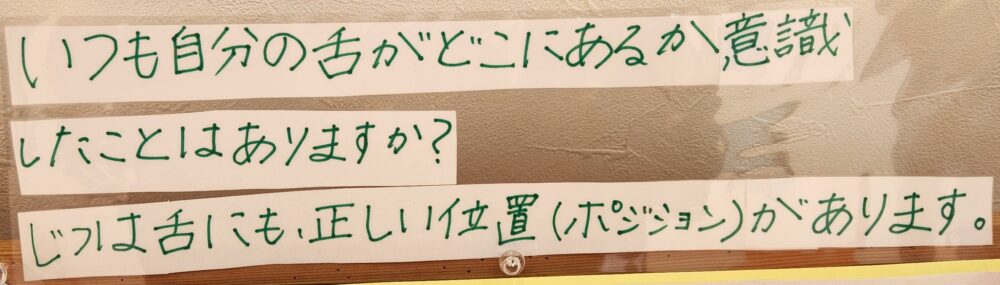 いつも自分の舌がどこにあるか、意識
したことはありますか？
じつは舌にも、正しい位置(ポジション)があります。